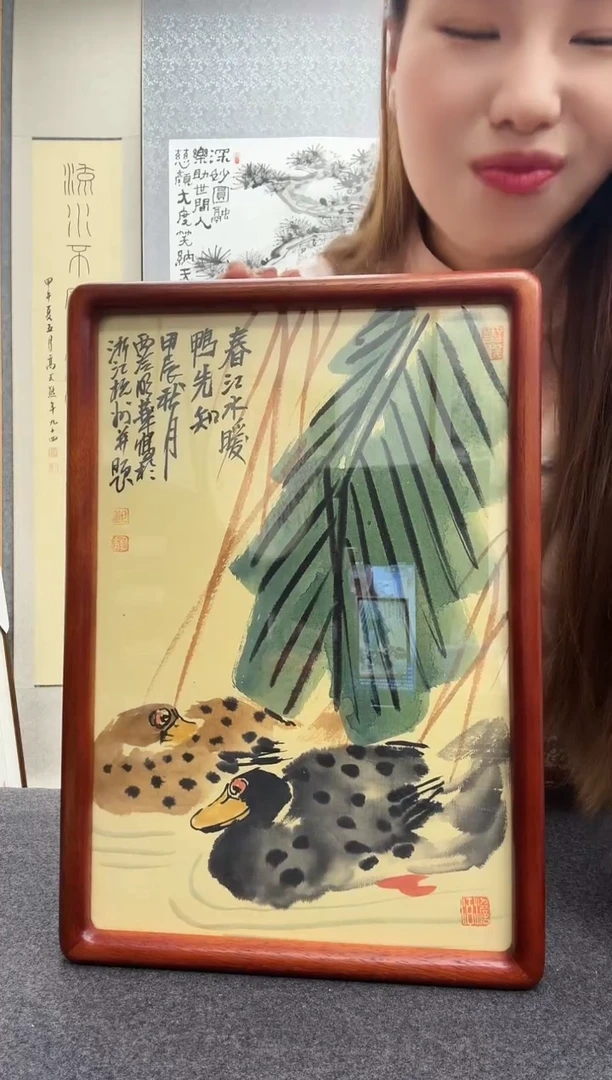 春江水暖
鴨先知
甲辰秋月
華寫於
浙江杭州并題
深妙圓融
樂助世間人
慈顏大度笑納天
流水不
甲午夏五月高式熊年九十四